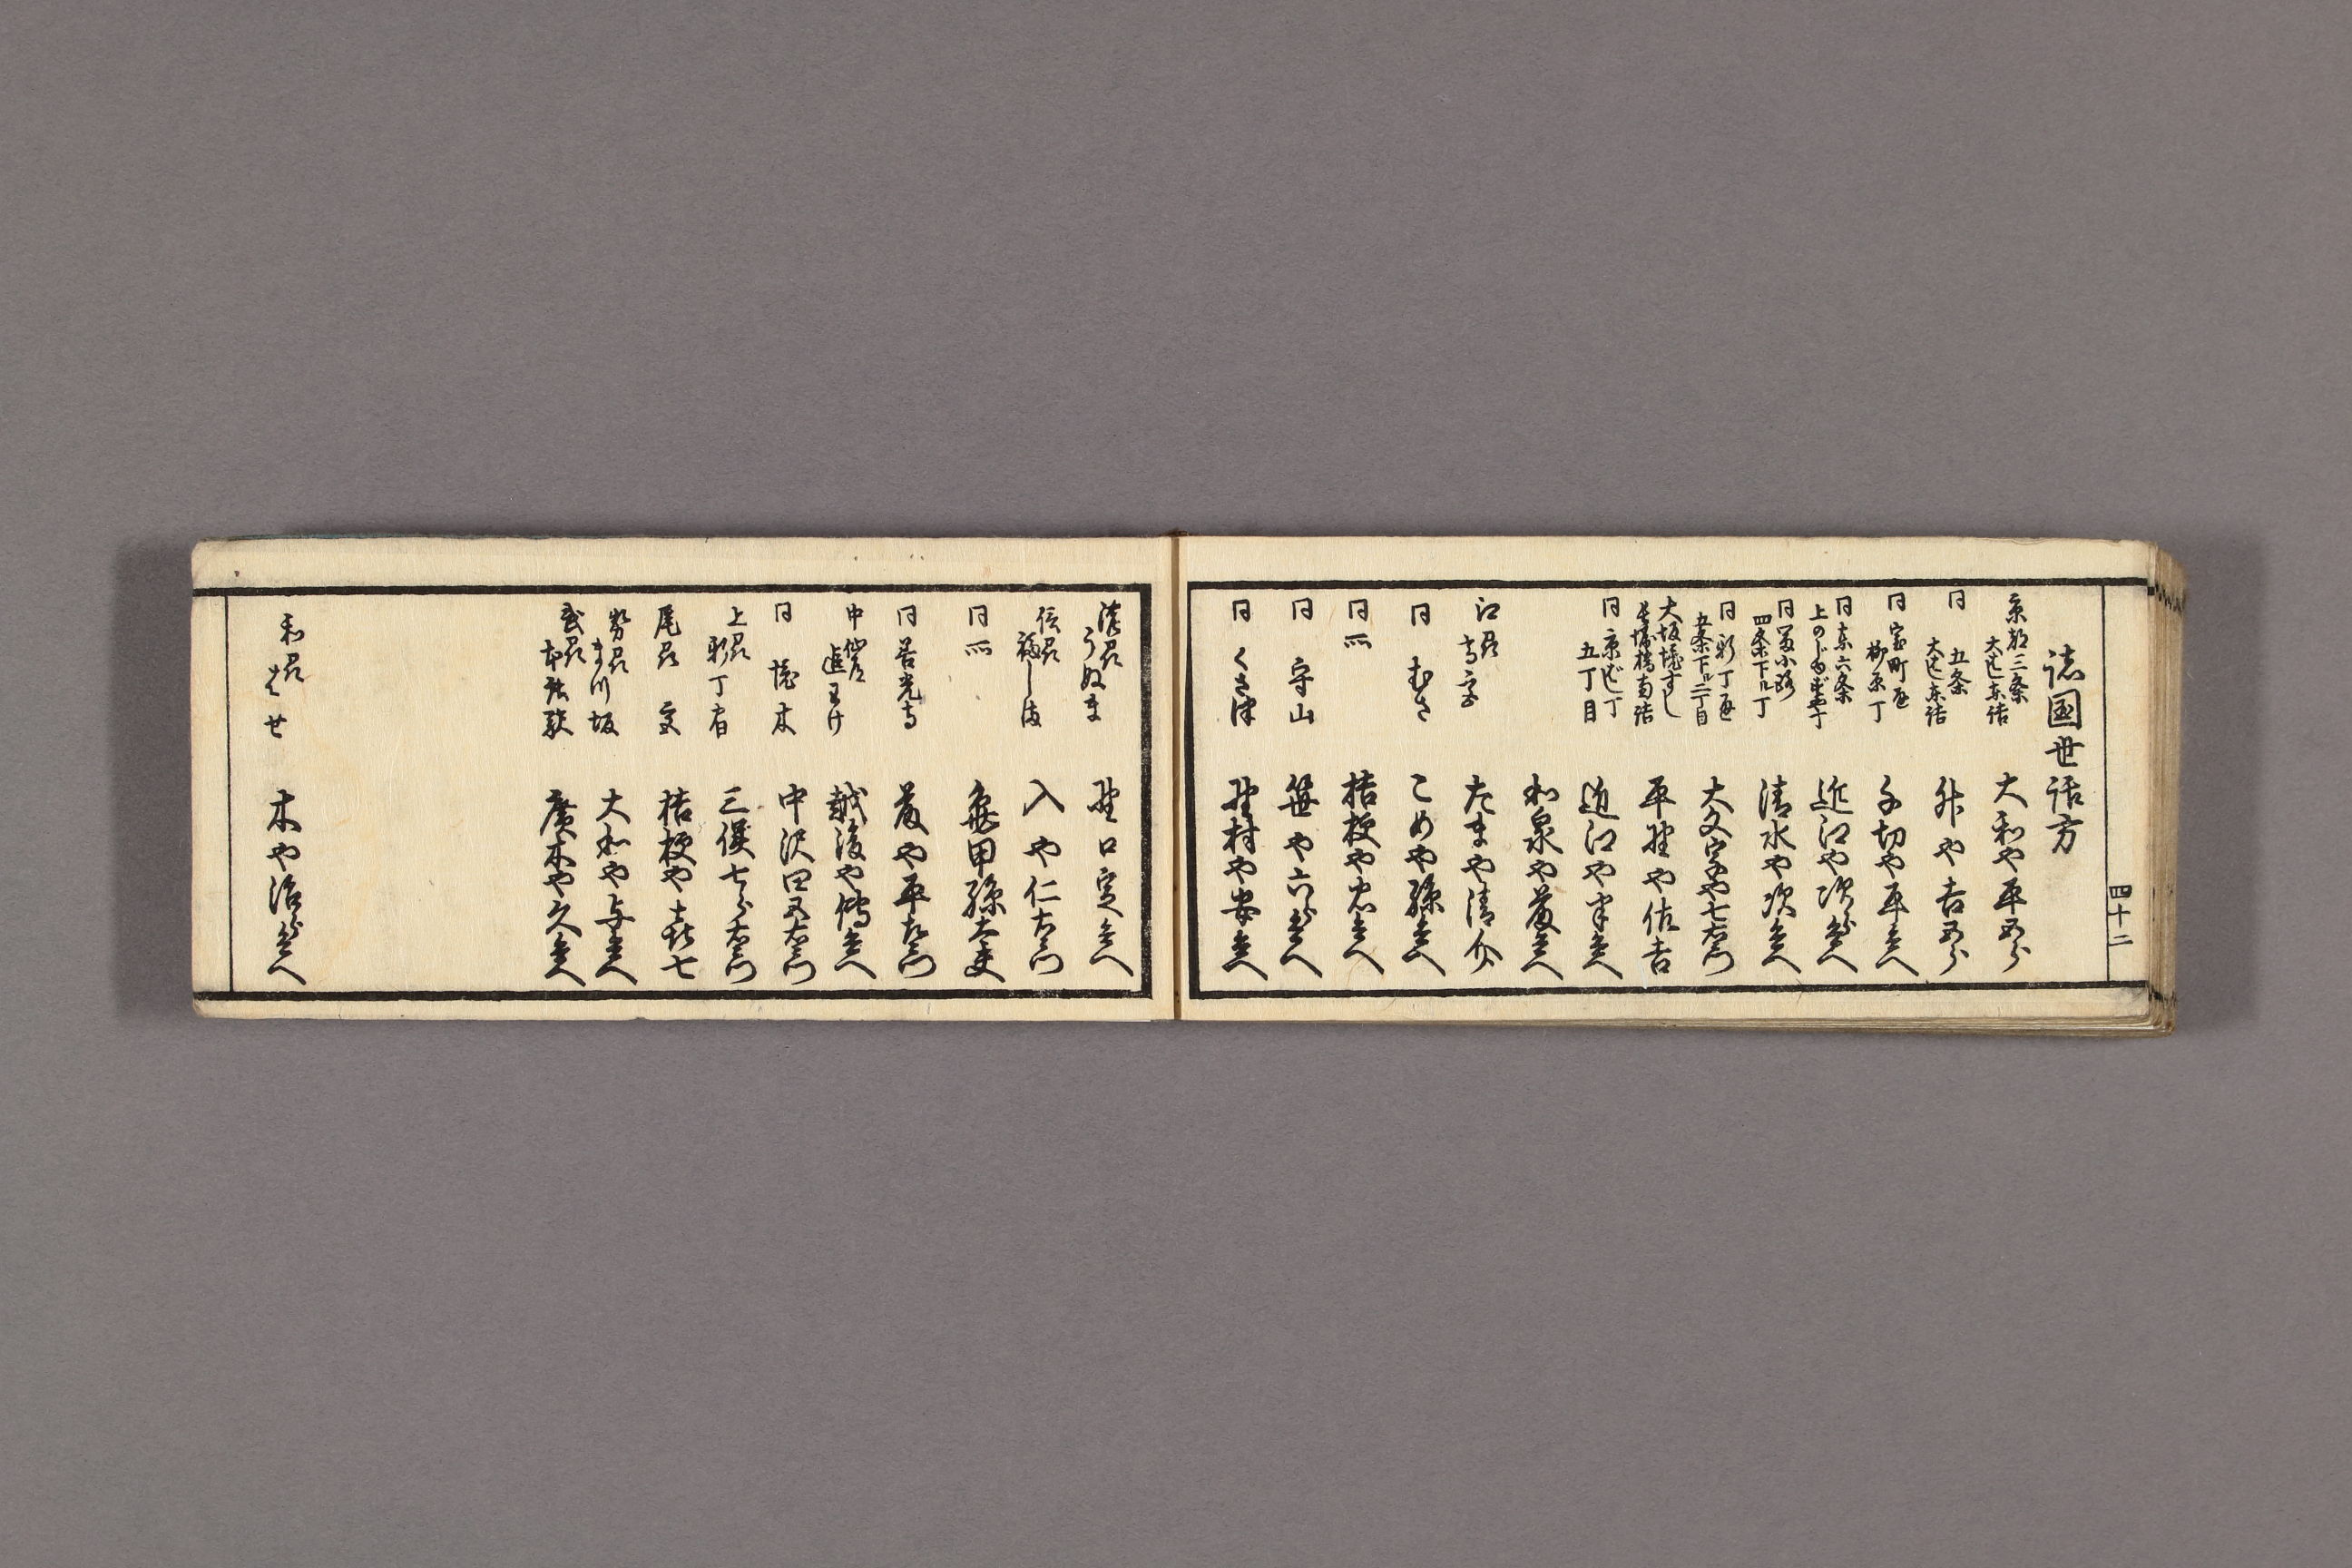 四十二
諸国世話方
京都三条
大はし東詰
大和や平五郎
同 五条
大はし東詰
升や吉五郎
同 室町通
柳原丁
千切や平兵へ
同 東六条
近江や次郎兵へ
同 冨小路
四条下ル丁
清水や次兵へ
同 新丁通
五条下ル二丁目
大文字や七右衛門
大坂堺すし
長堀橋南詰
平野や佐吉
同 京ばし丁
五丁目
近江や半兵へ
和泉や藤兵へ
江州
高宮
たまや清介
同 むさ
こめや孫兵へ
同 所
桔梗や忠兵へ
同 守山
笹や六郎兵へ
同 くさ津
野村や安兵へ
濃州
うぬま
野口定兵へ
信州
福しま
入や仁右衛門
同 所
亀甲孫太夫
同 善光寺
藤や平左衛門
中仙道
追わけ
越後や傳兵へ
同 境木
中沢田又右衛門
上州
新丁宿
三俣七郎右衛門
尾州 宮
桔梗や喜七
勢州
まつ坂
大和や与兵へ
武州
本庄駅
広木や久兵へ
和州
はせ
木や治郎兵へ